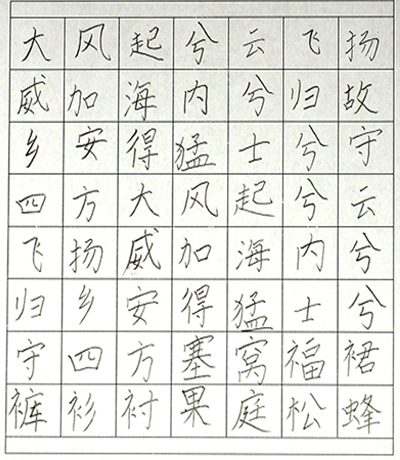 大风起兮云飞扬
威加海内兮归故
乡安得猛士兮守
四方大风起兮云
飞扬威加海内兮
归乡安得猛士兮
守四方塞窝福裙
裤衫衬果庭松蜂